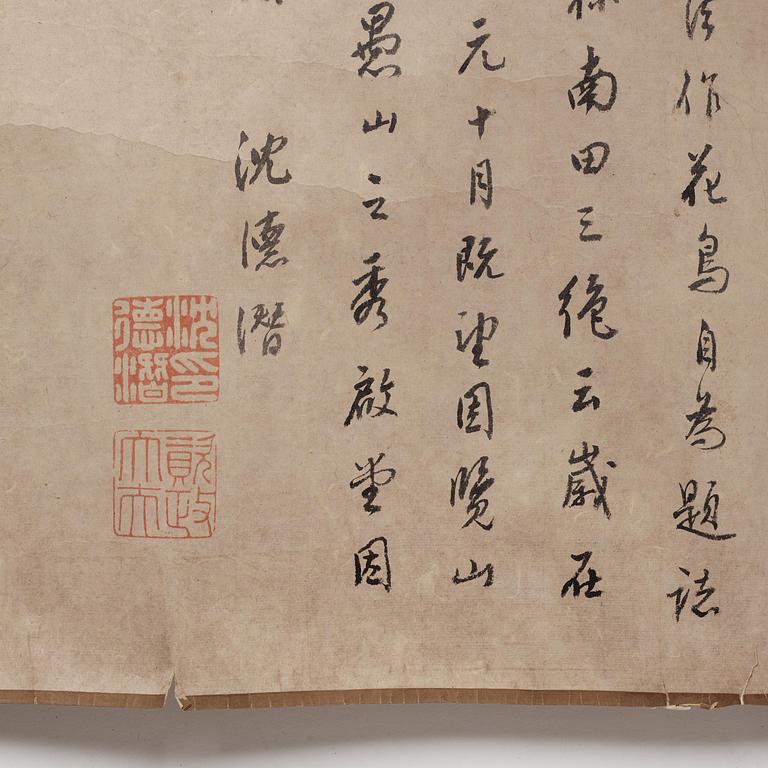 作花鳥自為題誌
南田三絕云歲在
元十月既望因覽山
愚山之秀啟堂因
沈德潛
沈印德潛